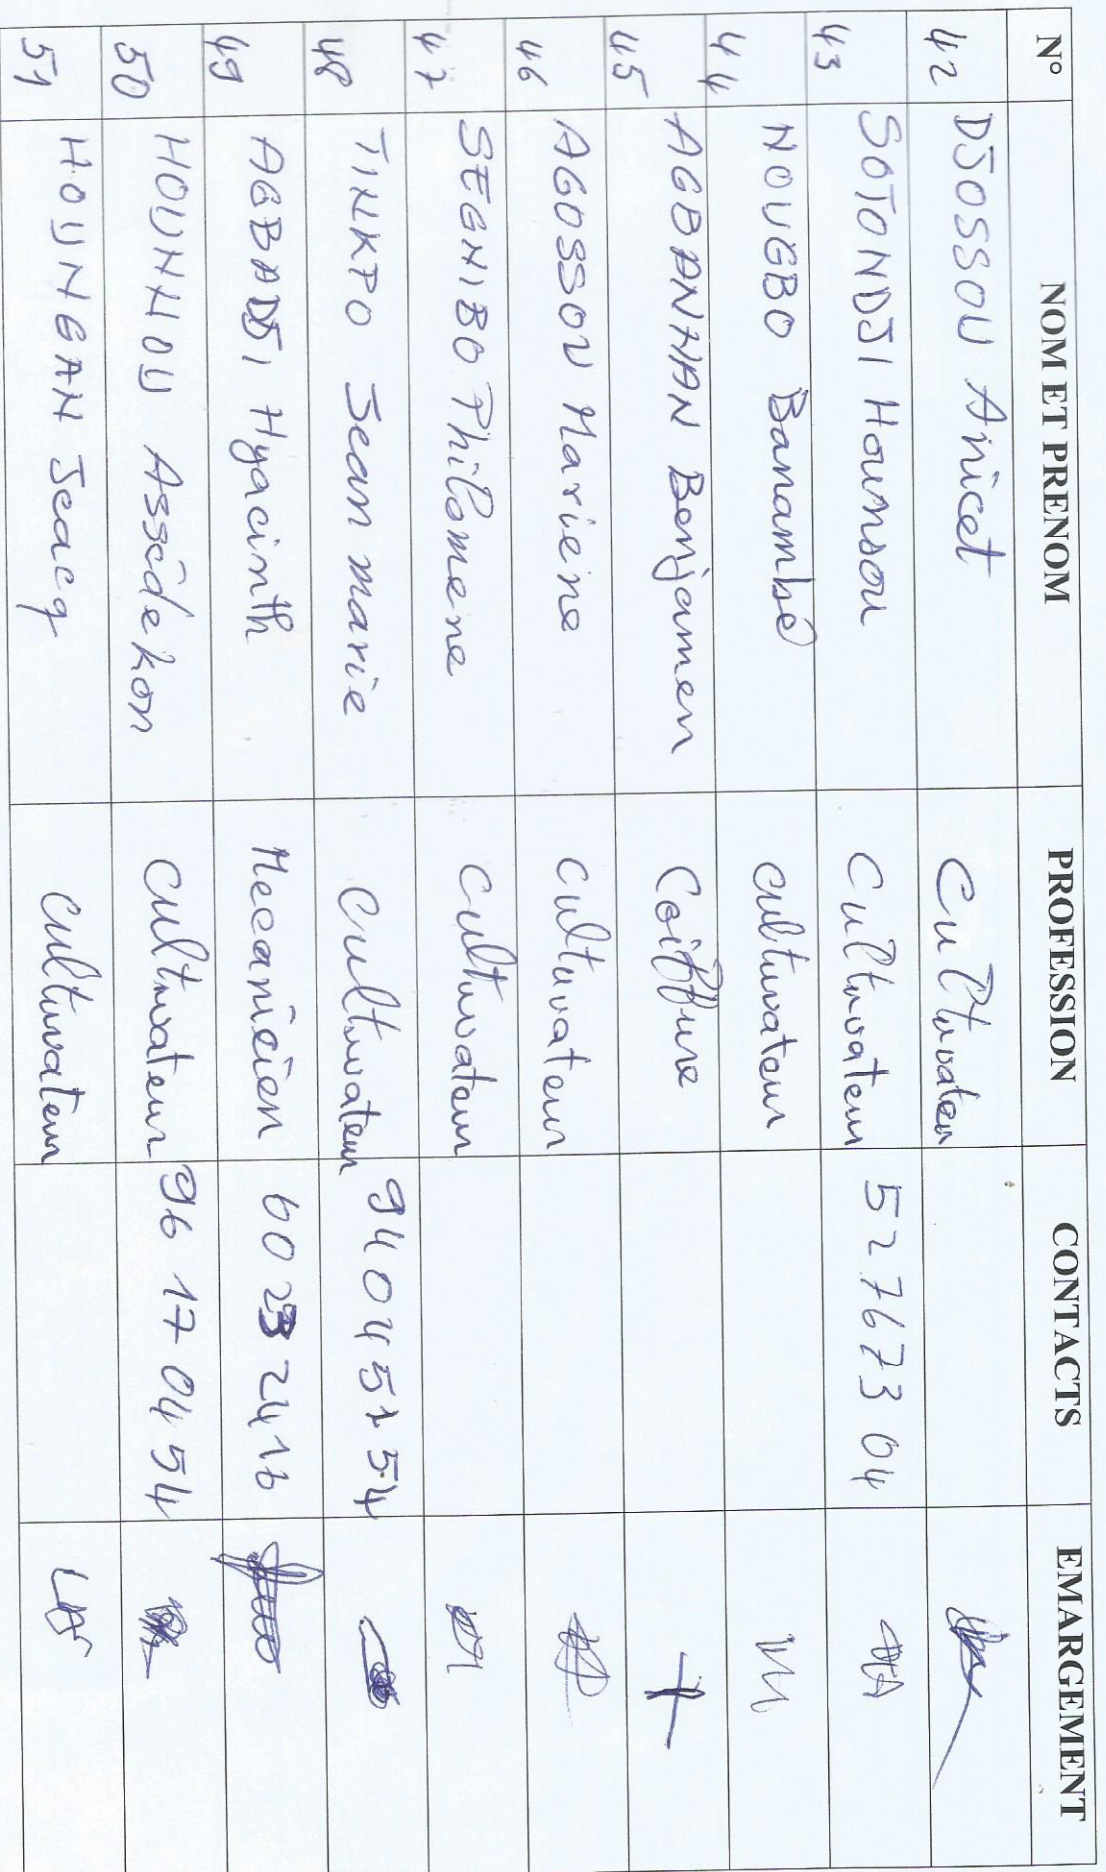 N° NOM ET PRENOM PROFESSION CONTACTS EMARGEMENT
42 DJOSSOU Anicet Cultivateu
43 SOTONDJI Hounsou Cultivateur 52 76 73 04
44 NOUGBO Banambé cultivateur
45 AGBANHAN Benjamen Coiffure
46 AGOSSOU Mariene cultivateur
47 SEGNIBO Philomene cultivateur
48 TINKPO Jean marie Cultivateur 94 04 52 54
49 AGBADJI Hyacinth Mecanicien 60 23 24 16
50 HOUNNOU Assédekon cultivateur 96 17 04 54
51 HOUNGAN Jeacq cultivateur